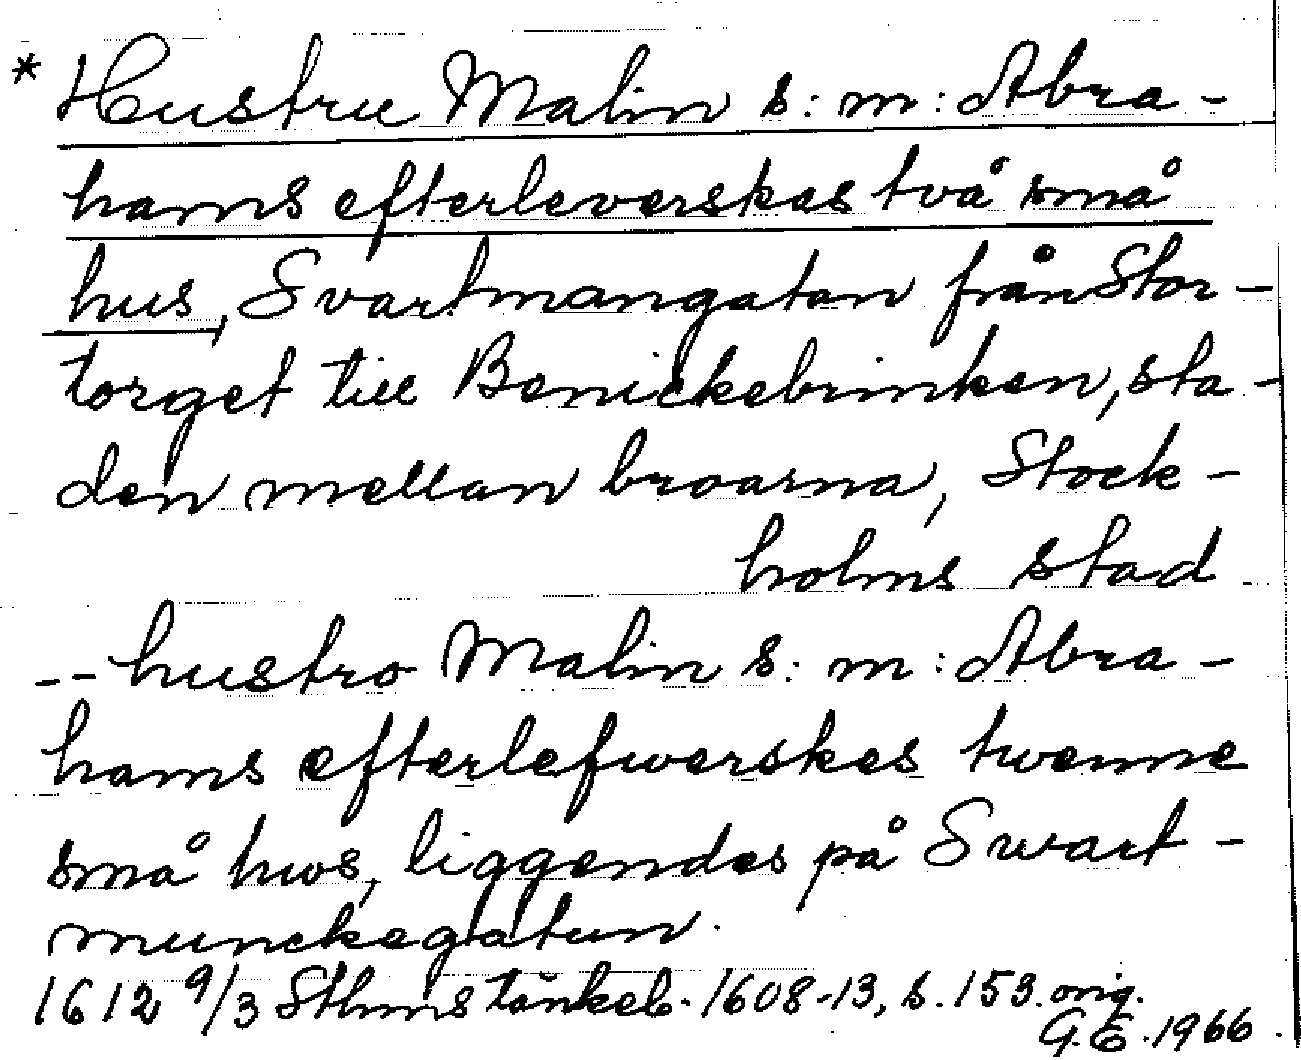 * Hustru Malin s:m: Abra-
hams efterleverskas två små
hus, Svartmangatan från Stor-
torget till Benickebrinken, sta-
den mellan broarna, Stock-
holms stad
-- hustro Malin s:m: Abra-
hams efterlefwerskes twenne
små hws, liggendes på Swart-
munckegatun.
1612 9/3 Sthms tänkeb. 1608-13, s. 153. orig.
G.E. 1966